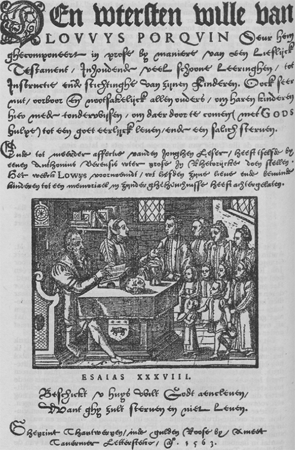 DEn wtersten wille van
LOVVYS PORQVIN Deur hem
ghecomponeert in prose by maniere van een Lieflijck
Testament, Inhoudende veel schoone Leeringhen, tot
Instructie ende stichtinghe van zijnen Kinderen. Oock seer
nut, oorboor en nootsakelijck allen ouders, om haren kinderen
hier mede tonderwijsen, om daer door te comen (met GODS
hulpe) tot een goet eerlijck leven, ende een salich sterven.
Ende tot meerder affectie van den Jonghen Leser, heeft selfs by
eenen Anthonius Verensis wter prose in Rhetorijcke doen stellen.
Het welck Lowys voornoemt, wt liefden zijne lieve ende beminde
kinderen tot een memoriael in zijnder ghelhedachnisse heeft achtergelaten.
ESAIAS XXXVIII.
Beschickt v huys wilt Godt aencleven,
Want ghy sult sterven en niet Leven.
Gheprint Thantwerpen, inde gulden Roose by Ameet
Tavernier Lettersteker, A. 1563.